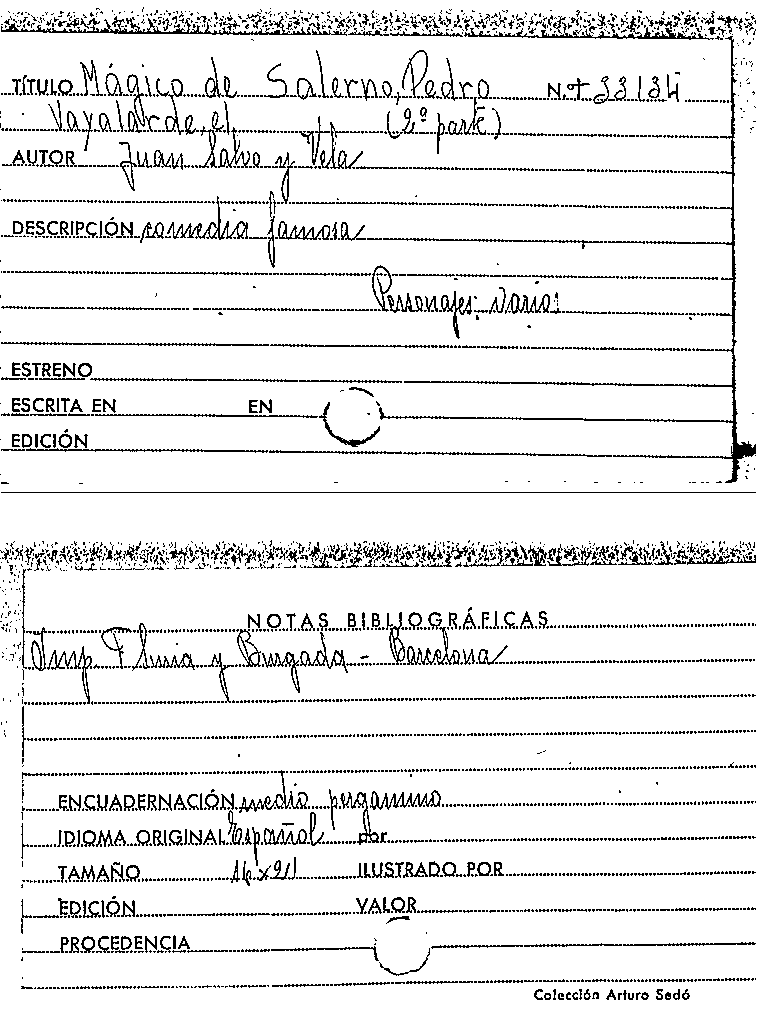 TÍTULO Mágico de Salerno, Pedro N.º + 33134
Vayalarde, el. (2ª parte)
AUTOR Juan Salvo y Vela
DESCRIPCIÓN comedia famosa
Personajes: varios
ESTRENO
ESCRITA EN EN
EDICIÓN
NOTAS BIBLIOGRÁFICAS
Imp. y Burgada - Barcelona
ENCUADERNACIÓN medio pergamino
IDIOMA ORIGINAL Español por
TAMAÑO 16 x 21 ILUSTRADO POR
EDICIÓN VALOR
PROCEDENCIA
Colección Arturo Sedó